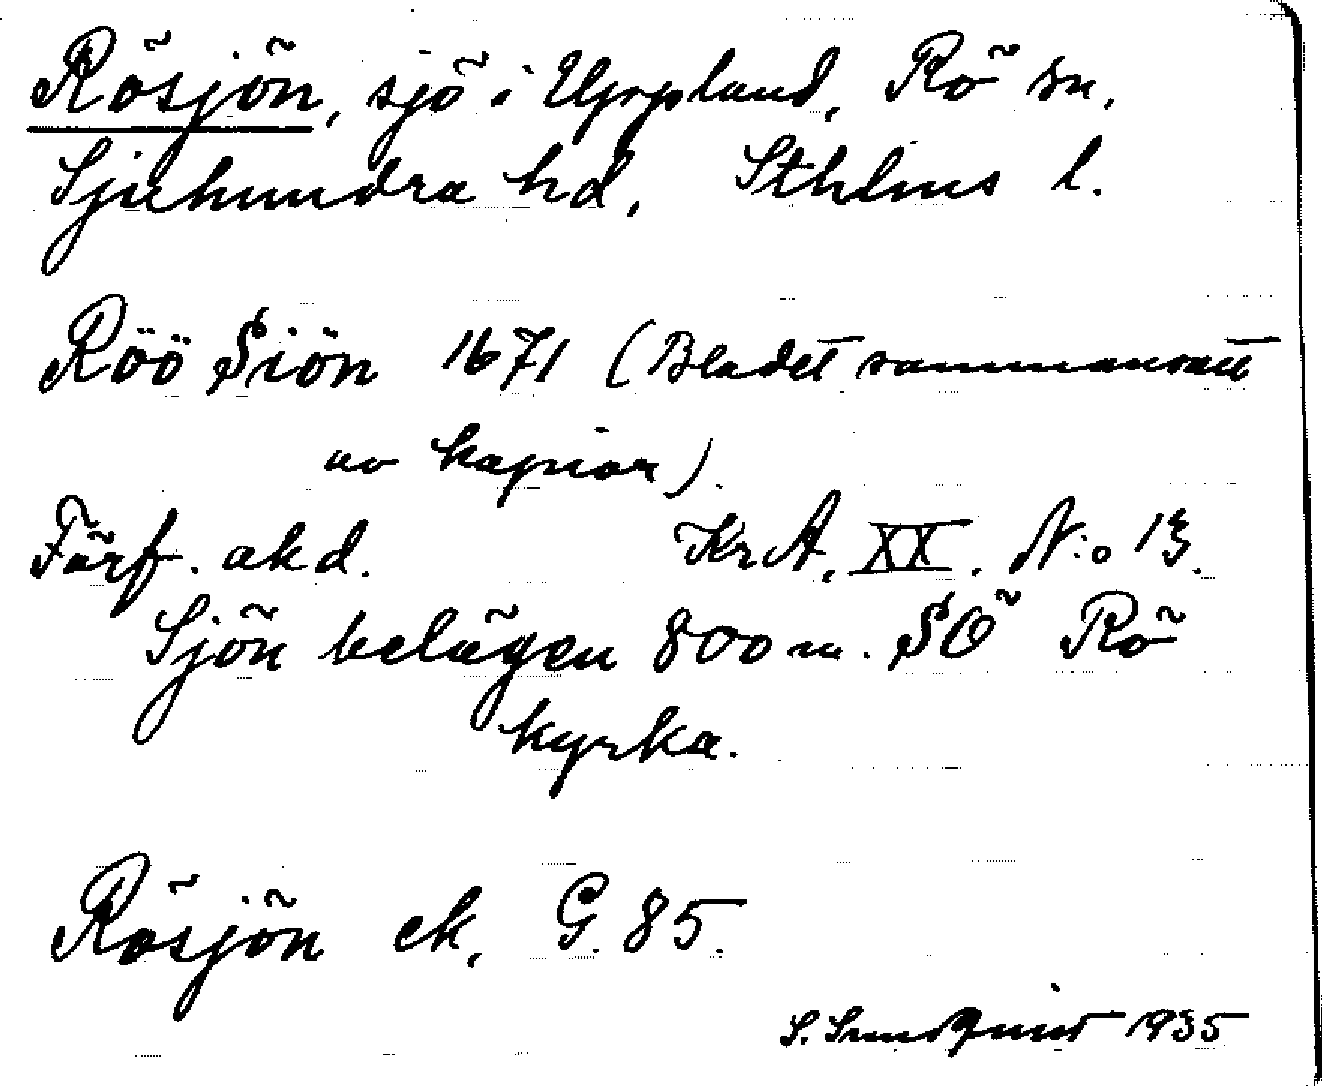 Rösjön, sjö i Uppland, Rö sn,
Sjuhundra hd, Sthlms l.
Röö Siön 1671 (Bladet sammansatt
av kopior).
Förf. okd. KrA, XX. N:o 13.
Sjön belägen 800 m. SÖ Rö
kyrka.
Rösjön ek, G. 85.
S. Sundquist 1935